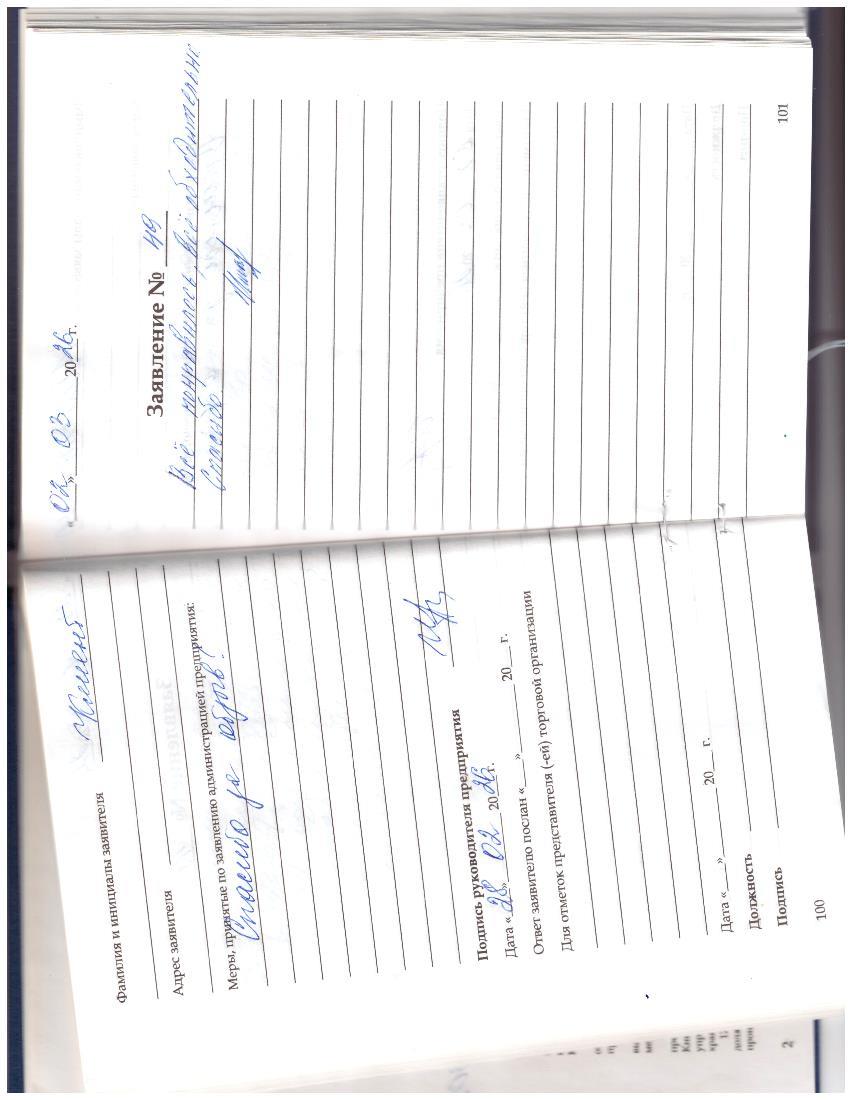 Фамилия и инициалы заявителя Клиент
Адрес заявителя
Меры, принятые по заявлению администрацией предприятия:
Спасибо за отзыв!
Подпись руководителя предприятия
Дата «28» 02 2026 г.
Ответ заявителю послан «___»________ 20___ г.
Для отметок представителя (-ей) торговой организации
Дата «___»________ 20___ г.
Должность
Подпись
100
«02» 03 2026 г.
Заявление № 49
Всё понравилось, всё обходительно
Спасибо!
101
2